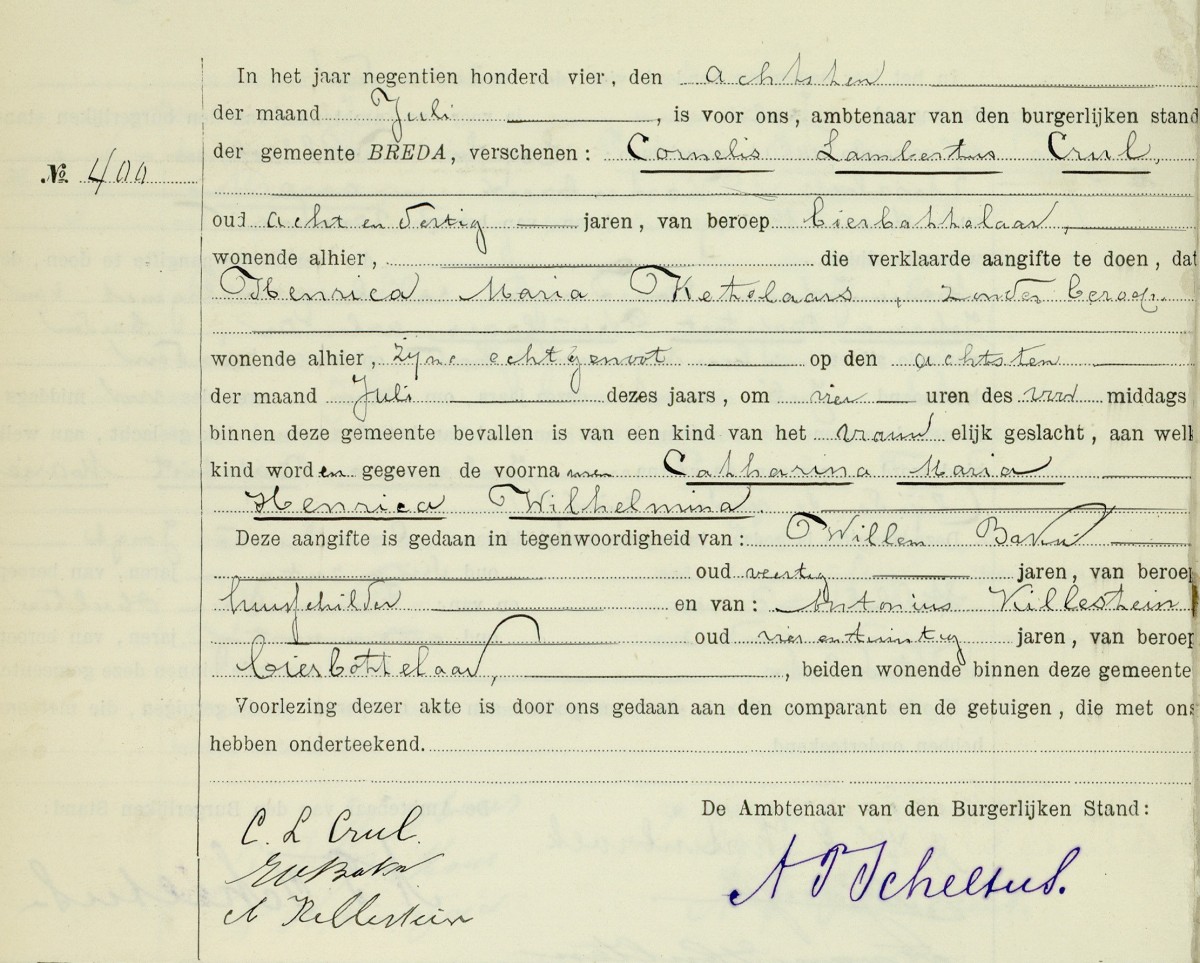 In het jaar negentien honderd vier, den achtsten
der maand Juli, is voor ons, ambtenaar van den burgerlijken stand
der gemeente BREDA, verschenen: Cornelis Lambertus Crul,
No. 400
oud acht en dertig jaren, van beroep bierbottelaar,
wonende alhier, die verklaarde aangifte te doen, dat
Henrica Maria Ketelaars, zonder beroep.
wonende alhier, zijne echtgenoot op den achtsten
der maand Juli dezes jaars, om vier uren des voor middags
binnen deze gemeente bevallen is van een kind van het vrouw elijk geslacht, aan welk
kind worden gegeven de voornamen Catharina Maria
Henrica Wilhelmina.
Deze aangifte is gedaan in tegenwoordigheid van: Willem
oud veertig jaren, van beroep
huisschilder en van: Antonius Killestein
oud vier en twintig jaren, van beroep
bierbottelaar, beiden wonende binnen deze gemeente
Voorlezing dezer akte is door ons gedaan aan den comparant en de getuigen, die met ons
hebben onderteekend.
De Ambtenaar van den Burgerlijken Stand:
C. L Crul.
A Killestein